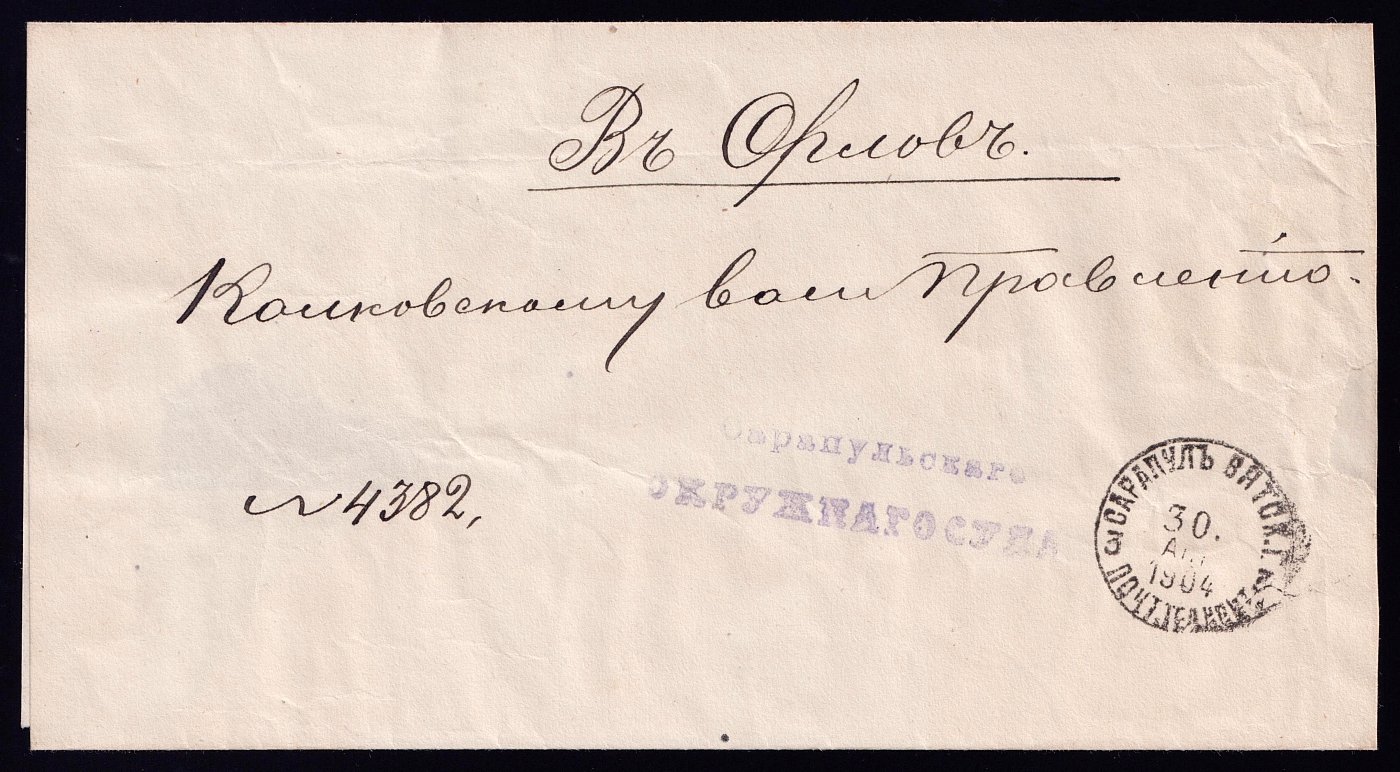 Въ Орловъ.
Колковскому вол Правленію.
№ 4382,
Сарапульскаго
ОКРУЖНАГО СУДА
САРАПУЛЪ ВЯТСК. Г.
30.
АП
1904
3 ПОЧТ. ТЕЛ. КОНТ.